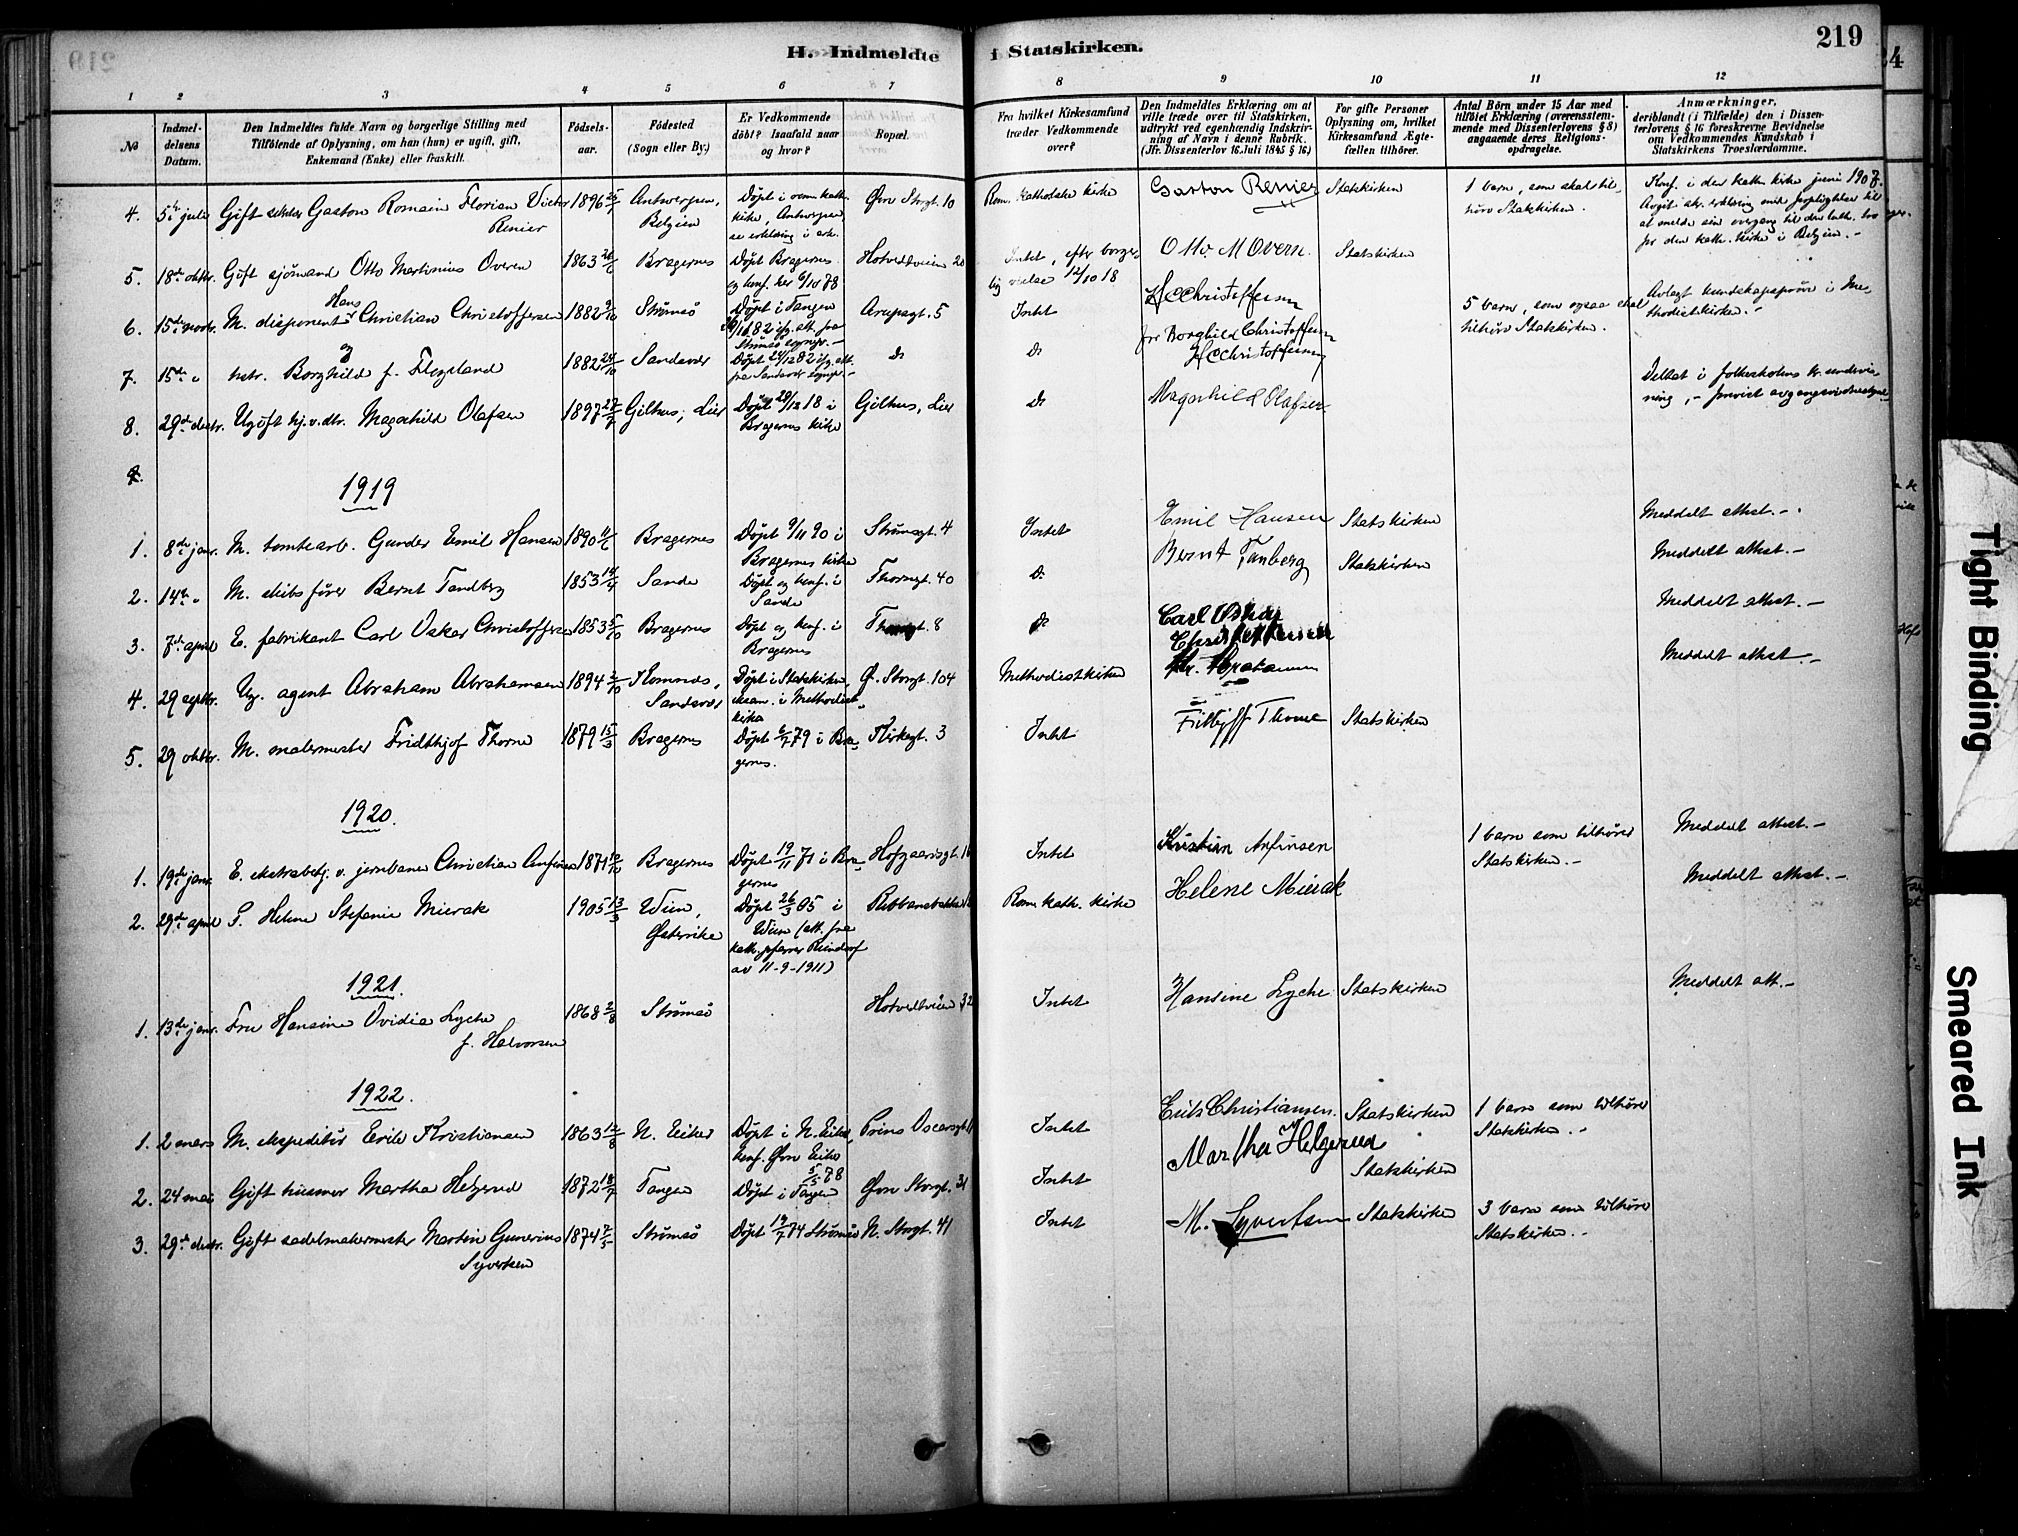 H. Indmeldte i Statskirken.
219
1 2 3 4 5 6 7 8 9 10 11 12
No
Indmeldelsens Datum.
Den Indmeldtes fulde Navn og borgerlige Stilling med Tilföiende af Oplysning, om han (hun) er ugift, gift, Enkemand (Enke) eller fraskilt.
Födsels-aar.
Födested (Sogn eller By.)
Er Vedkommende döbt? Isaafald naar og hvor?
Bopæl.
Fra hvilket Kirkesamfund træder Vedkommende over?
Den Indmeldtes Erklæring om at ville træde over til Statskirken, udtrykt ved egenhændig Indskrivning af Navn i denne Rubrik. (Jfr. Dissenterlov 16. Juli 1845 § 16.)
For gifte Personer Oplysning om, hvilket Kirkesamfund Ægtefællen tilhörer.
Antal Börn under 15 Aar med tilföiet Erklæring (overensstemmende med Dissenterlovens § 8) angaaende deres Religionsopdragelse.
Anmærkninger, deriblandt (i Tilfælde) den i Dissenterlovens § 16 foreskrevne Bevidnelse om Vedkommendes Kundskab i Statskirkens Troeslærdomme.
4. 5te juli Gift Gaston Romain Florian Victor Renier 1896 25/7 Antwerpen, Belgien Döpt i rom. kath. kirke, Antwerpen Øvre Storgt. 10 Rom. Katholske kirke Gaston Renier Statskirken 1 barn, som skal tilhöre Statskirken. Konf. i den kath. kirke juni 1907.
5. 18de oktbr. Gift sjömand Otto Martinius Overn 1863 26/6 Bragernes Döpt Bragernes og konf. her 6/10 78 Hotvedtveien 20 Intet, efter borgerlig vielse 12/10 18 Otto M Overn. Statskirken
6. 15de novbr. M. disponent Hans Christian Christoffersen 1882 9/10 Strømsö Döpt i Tangen Arupsgt. 5 Intet H C Christoffersen 5 barn, som ogsaa skal tilhöre Statskirken. Avlagt kundskapspröve i Methodistkirken.-
7. 15de " og hstr. Borghild f. Flogeland 1882 24/10 Sandsvær Döpt 24/12 82 Do Do fru Borghild Christoffersen H C Christoffersen
8. 29de desbr. Ugift hj.v. dtr. Magnhild Olafsen 1897 27/7 Gilhus, Lier Döpt 29/12 18 i Bragernes kirke Gilhus, Lier Do Magnhild Olafsen Deltat i folkeskolens kr. undervisning,
1919
1. 8de janr. M. tomtearb. Gunder Emil Hansen 1890 11/6 Bragernes Döpt 9/11 90 i Bragernes kirke Strømsgt. 4 Intet Emil Hansen Statskirken Meddelt attest.-
2. 14de " M. skibsförer Bernt Tandberg 1853 Sande Döpt og konf. i Sande Thornegt. 40 Do Bernt Tanberg Statskirken Meddelt attest.-
3. 7de april E. fabrikant Carl Oskar Christoffersen 1853 5/10 Bragernes Döpt og konf. i Bragernes 8 Do Carl Oskar Christoffersen Meddelt attest.-
4. 29 septbr. Ug. agent Abraham Abrahamsen 1894 2/10 Komnes, Sandsvær Döpt i Statskirken, eksam. i Methodistkirken Ø. Storgt. 104 Methodistkirken Meddelt attest.-
5. 29 oktbr. M. malermester Fridthjof Thorne 1879 15/3 Bragernes Döpt 6/7 79 i Bragernes. Kirkegt. 3 Intet Fridtjof Thorne Statskirken
1920.
1. 19de janr. E. ekstrabetj. v. jernbanen Christian Anfinsen 1871 Bragernes Döpt 19/11 71 i Bragernes Hofgaardsgt. Intet Kristian Anfinsen 1 barn som tilhörer Statskirken.- Meddelt attest.-
2. 29de april P. Helene Stefanie Mierak 1905 13/3 Wien, Østerrike Döpt 26/3 05 i Wien (att. fra kath. pfarrer av 11-9-1911) Rom. kath. kirke Helene Mierak Meddelt attest.-
1921.
1. 13de janr. Fru Hansine Ovidia Lyche f. Halvorsen 1868 2/8 Strømsö Hotvedtveien 32 Intet Hansine Lyche Statskirken Meddelt att.-
1922.
1. 2 mars M. ekspeditör Erik Kristiansen 1863 12/8 N. Eiker Döpt i N. Eiker, konf. Øvre Eiker 5/5 78 Prins Oscarsgt. Intet Erik Christiansen. Statskirken 1 barn som tilhörer Statskirken.-
2. 24 mai Gift husmor Martha Helgerud 1872 18/7 Tangen Döpt i Tangen Øvre Storgt. 31 Intet Martha Helgerud Statskirken
3. 29de desbr. Gift sadelmakermester Martin Gunerius Syvertsen 1874 2/5 Strømsö Döpt 19/7 74 Strømsö N. Storgt. 41 Intet M. Syvertsen Statskirken 3 barn som tilhörer Statskirken.-
Tight Binding
Smeared Ink